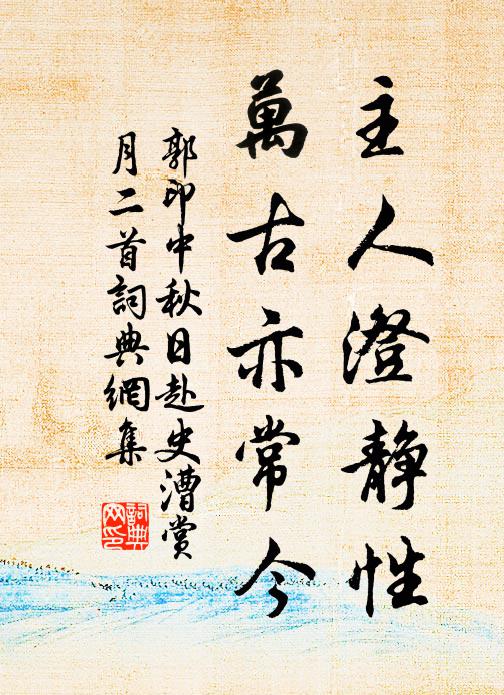 主人澄静性
萬古亦常今
郭印中秋日赴史漕賞
月二首詞典網集
詞典
网印